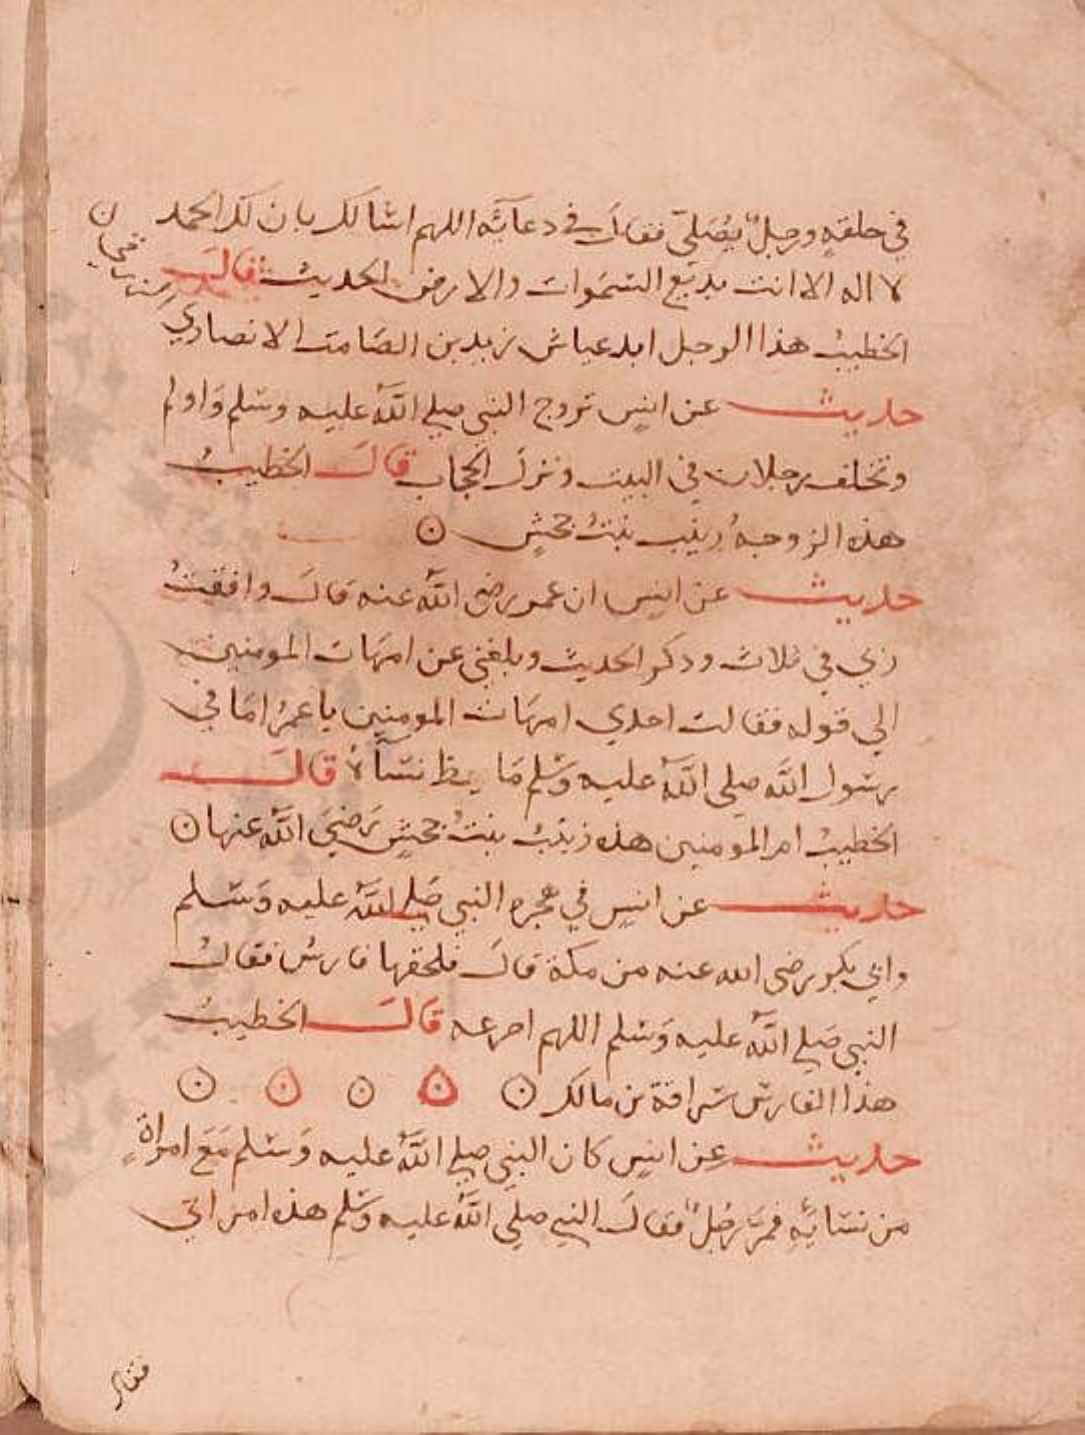 في حلقه ورجل يصلي فقال في دعائه اللهم اسالك بان لك الحمد
لا اله الا انت بديع السموات والارض الحديث قال
الخطيب هذا الرجل ابو عياش زيد بن الصامت الانصاري
حديث عن انس تزوج النبي صلي الله عليه وسلم واولم
وتخلف رجلان في البيت ونزل الحجاب قال الخطيب
هذه الزوجه زينب بنت جحش ن
حديث عن انس ان عمر رضي الله عنه قال وافقت
ربي في ثلاث وذكر الحديث وبلغني عن امهات المومنين
الي قوله فقالت احدي امهات المومنين يا عمر اما في
رسول الله صلي الله عليه وسلم ما يعظ نساه قال
الخطيب ام المومنين هذه زينب بنت جحش رضي الله عنها ن
حديث عن انس في هجره النبي صلي الله عليه وسلم
وابي بكر رضي الله عنه من مكة قال فلحقها فارس فقال
النبي صلي الله عليه وسلم اللهم اصرعه قال الخطيب
هذا الفارس سراقة بن مالك ن ن ن ن ن
حديث عن انس كان النبي صلي الله عليه وسلم مع امراة
من نسايه فمر رجل فقال النبي صلي الله عليه وسلم هذه امراتي
فقال